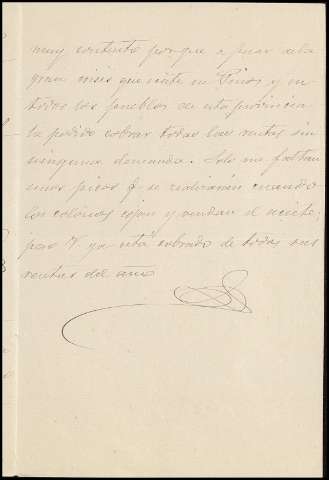 muy contento porque a pesar de la
gran crisis que existe en Pinos y en
todos los pueblos de esta provincia
he podido cobrar todas las rentas sin
ninguna demanda. Solo me faltan
unos picos q. se realizarán cuando
los colonos cojan y vendan el aceite;
pero V. ya está cobrado de todas sus
rentas del año